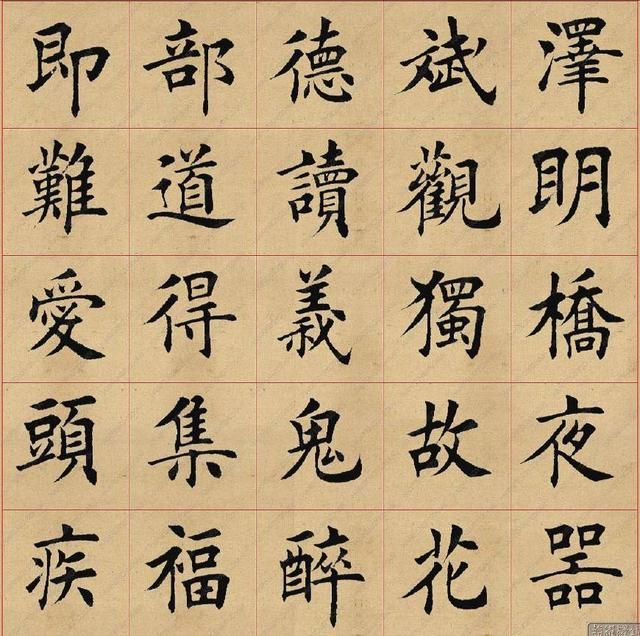 即部德斌澤
難道讀觀明
愛得義獨橋
頭集鬼故夜
疾福醉花器